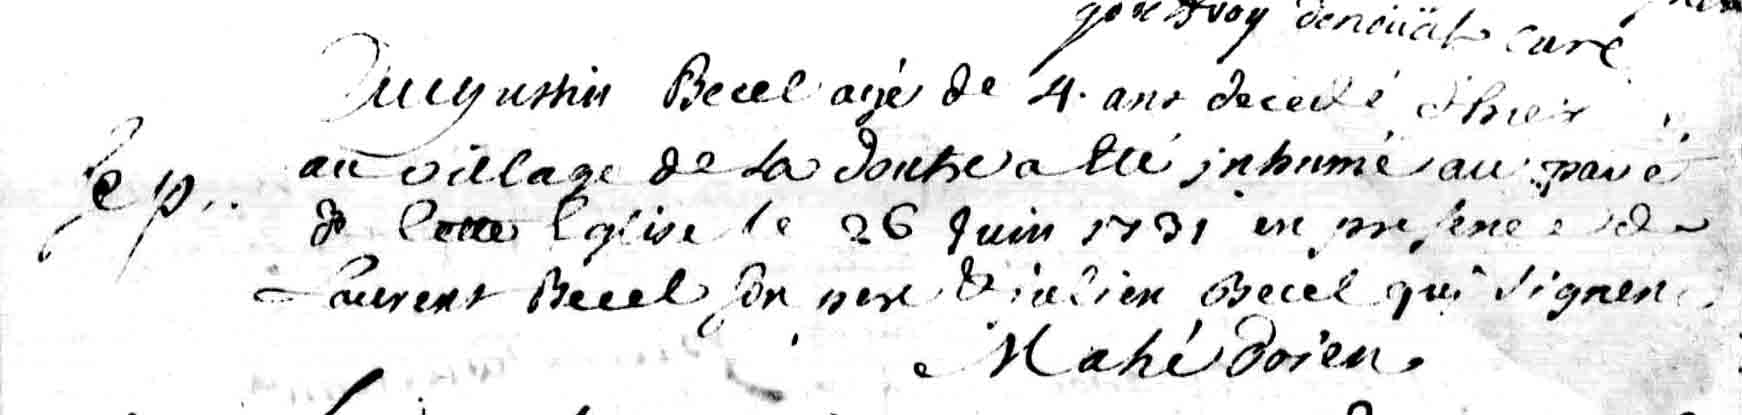 denoüal curé
Augustin Becel agé de 4. ans decedé d'hier
au village de la doutre a Eté inhumé au pavé
Sep..
de Cette Eglise le 26 Juin 1731 en presence de
Laurent Becel son pere & julien Becel qui signent
Mahé doien